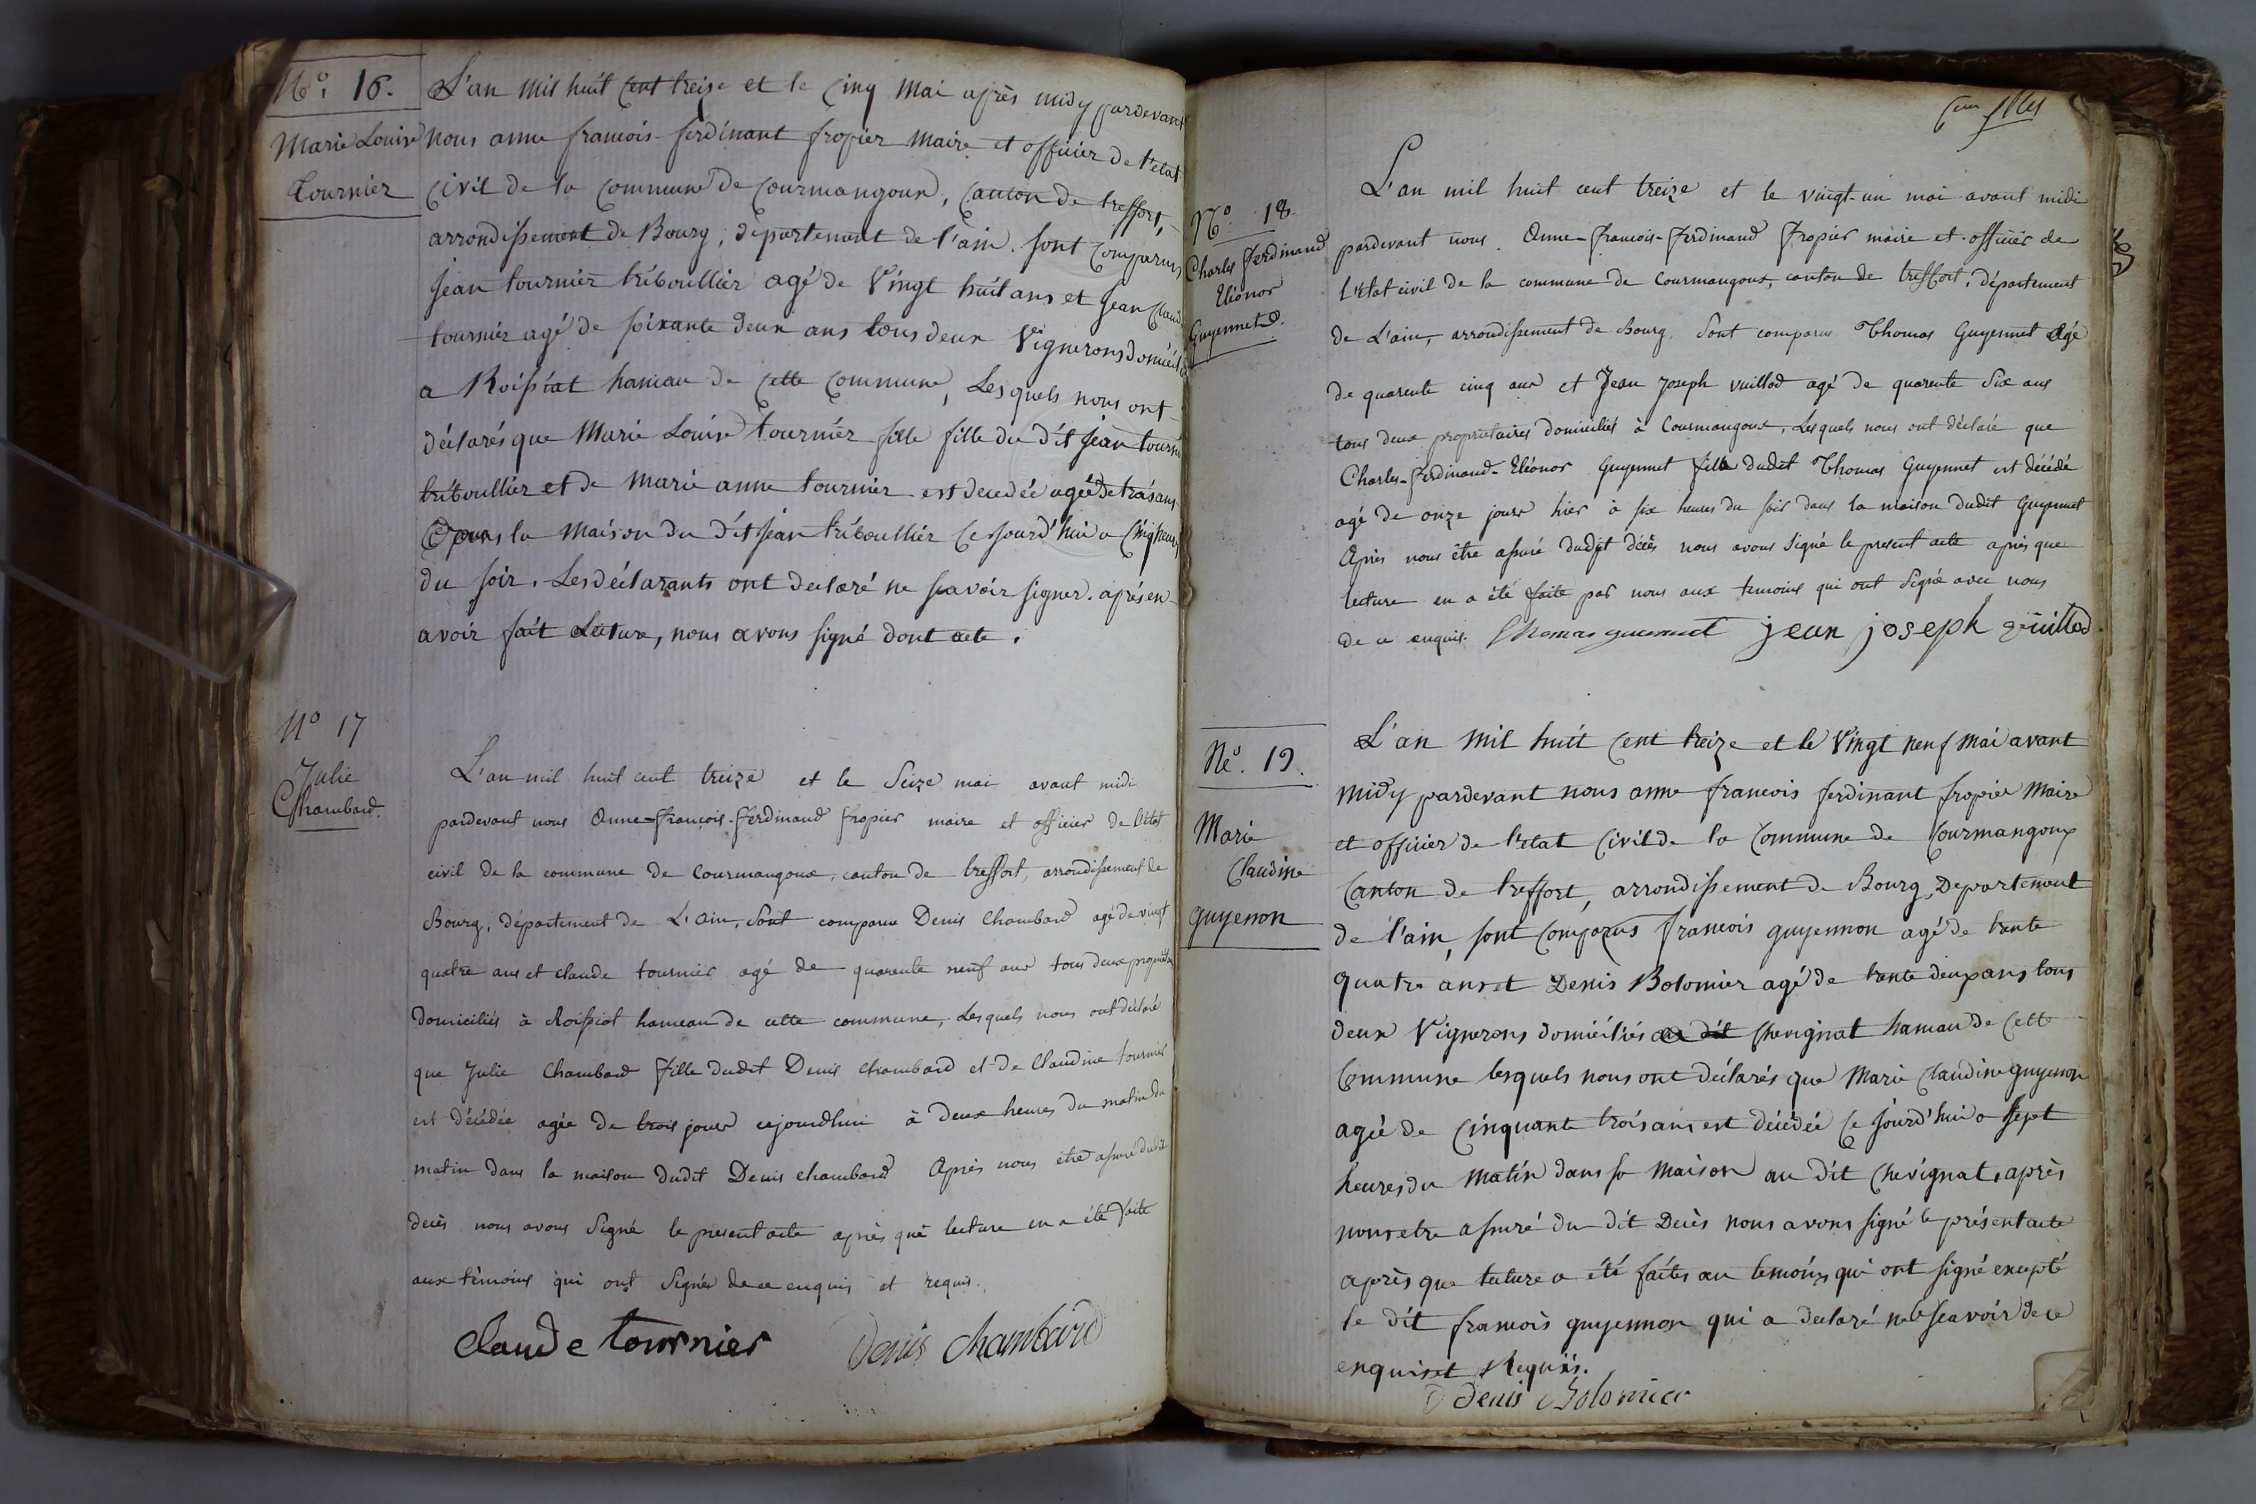 No. 16.
Marie Louise
Tournier
L'an mil huit cent treise et le cinq mai après midy pardevant
nous anne francois-ferdinant fropier maire et officier de l'etat
civil de la commune de courmangoux, canton de treffort,
arrondissement de Bourg, département de l'ain. sont comparus
jean tournier triboullier agé de vingt huit ans et jean claude
tournier agé de soixante deux ans tous deux vignerons domicil
a Roissiat hameau de cette commune, Lesquels nous ont
déclarés que Marie Louise tournier fille fille du dit jean tournie
triboullier et de marie anne tournier est decedée agée de trois ans
dans la maison du dit jean triboullier ce jourd'hui a cinq heures
du soir. Les déclarants ont declaré ne scavoir signer. après en
avoir fait Lecture, nous avons signé dont acte.
No 17
Julie
Chambard.
L'an mil huit cent treize et le seize mai avant midi
pardevant nous Anne-François-Ferdinand fropier maire et officier de l'état
civil de la commune de Courmangoux, canton de treffort, arrondissement de
Bourg, département de L'ain, sont comparus Denis Chambard agé de vingt
quatre ans et claude tournier agé de quarente neuf ans tous deux propriétaires
domiciliés à Roissiat hameau de cette commune, Lesquels nous ont déclaré
que Julie Chambard fille dudit Denis chambard et de Claudine tournier
est décédée agée de trois jours cejourdhui à deux heures du matin du
matin dans la maison dudit Denis chambard Après nous être assuré dudit
decès nous avons signé le present acte après que lecture en a été faite
aux témoins qui ont signés de ce enquis et requis.
Claude tournier Denis chambard
No. 18
Charles Ferdinand
Eléonor
Guyennet.
L'an mil huit cent treize et le vingt-un mai avant midi
pardevant nous. Anne-François-Ferdinand Fropier maire et officier de
l'état civil de la commune de Courmangoux, canton de treffort, département
de L'ain, arrondissement de bourg. Sont comparus Thomas Guyennet agé
de quarente cinq ans et Jean Joseph vuillod agé de quarente six ans
tous deux propriétaires domiciliés à Courmangoux, Lesquels nous ont déclaré que
Charles-Ferdinand-Eléonor Guyennet fille dudit Thomas Guyennet est décédé
agé de onze jours hier à six heures du soir dans la maison dudit Guyennet
Après nous être assuré dudit décès nous avons signé le present acte après que
lecture en a été faite par nous aux temoins qui ont signé avec nous
de ce enquis. Thomas guyennet jean joseph guillod
No. 19.
Marie
Claudine
guyenon
L'an mil huit cent treize et le vingt neuf mai avant
midy pardevant nous anne francois ferdinant fropier maire
et officier de l'etat civil de la commune de Courmangoux
Canton de treffort, arrondissement de Bourg, Departement
de l'ain, sont comparus francois guyennon agé de trente
quatre ans et Denis Bolomier agé de trente deux ans tous
deux vignerons domiciliés au dit chevignat hameau de cette
Commune lesquels nous ont déclarés que Marie Claudine guyenon
agée de cinquante trois ans est décédée ce jourd'hui a sept
heures du matin dans sa maison au dit chevignat, après
nous etre assuré du dit Decès nous avons signé le présent acte
après que lecture a été faites au temoins qui ont signé excepté
le dit francois guyennon qui a declaré ne le scavoir de ce
enquis et Requis.
Denis Bolomier